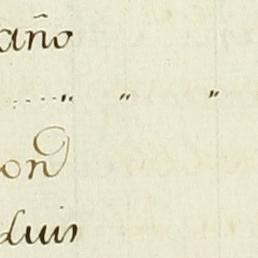 año
" " "
on
Luis